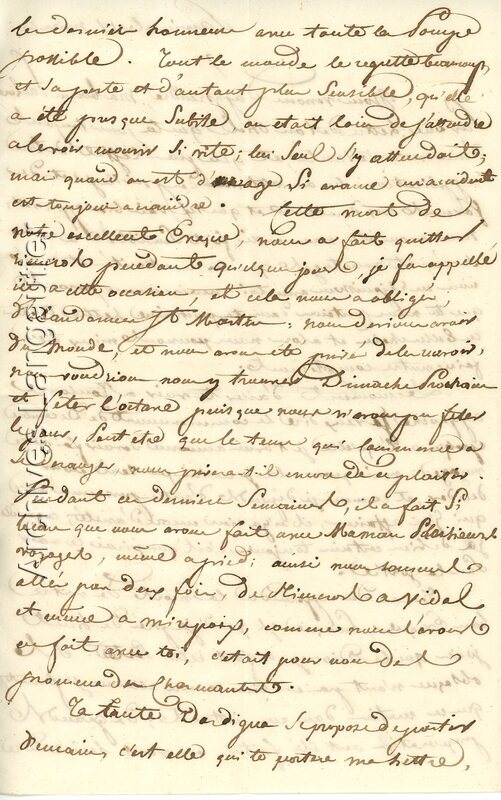 les dernier honneurs avec toute la Pompe
possible. Tout le monde le regrette beaucoup,
et sa perte et d'autant plus sensible, qu'elle
a été presque subite, on etait loin de s'attendre
a le voir mourir si vite; lui seul s'y attendait;
mais quand on est d'un age si avancé un accident
est toujour a craindre. Cette mort de
notre excellent Eveque, nous a fait quitter
pendant quelque jours, je fus appellé
ici a cette occasion, et cela nous a obligé,
d'abandonner St Martin; nous devions avoir
du Monde, et nous avons été privé de les avoir,
nous voudrions nous y trouver Dimanche Prochain
et fêter l'octave puisque nous n'avons pu fêter
le jour, Peut etre que le tems qui commence a
se ranger, nous privera-t-il encore de ce plaisir.
Pendant ces derniere Semaines, il a fait si
beau que nous avons fait avec Maman plusieurs
voyages, même a pied; ainsi nous sommes
allés par deux fois, de a Vidal
et même a mirepoix, comme nous l'avons
fait avec toi, c'etait pour nous des
promenades Charmantes.
Ta tante Dardigna se propose de partir
Demain, c'est elle qui te portera ma lettre,
Archives Langellier